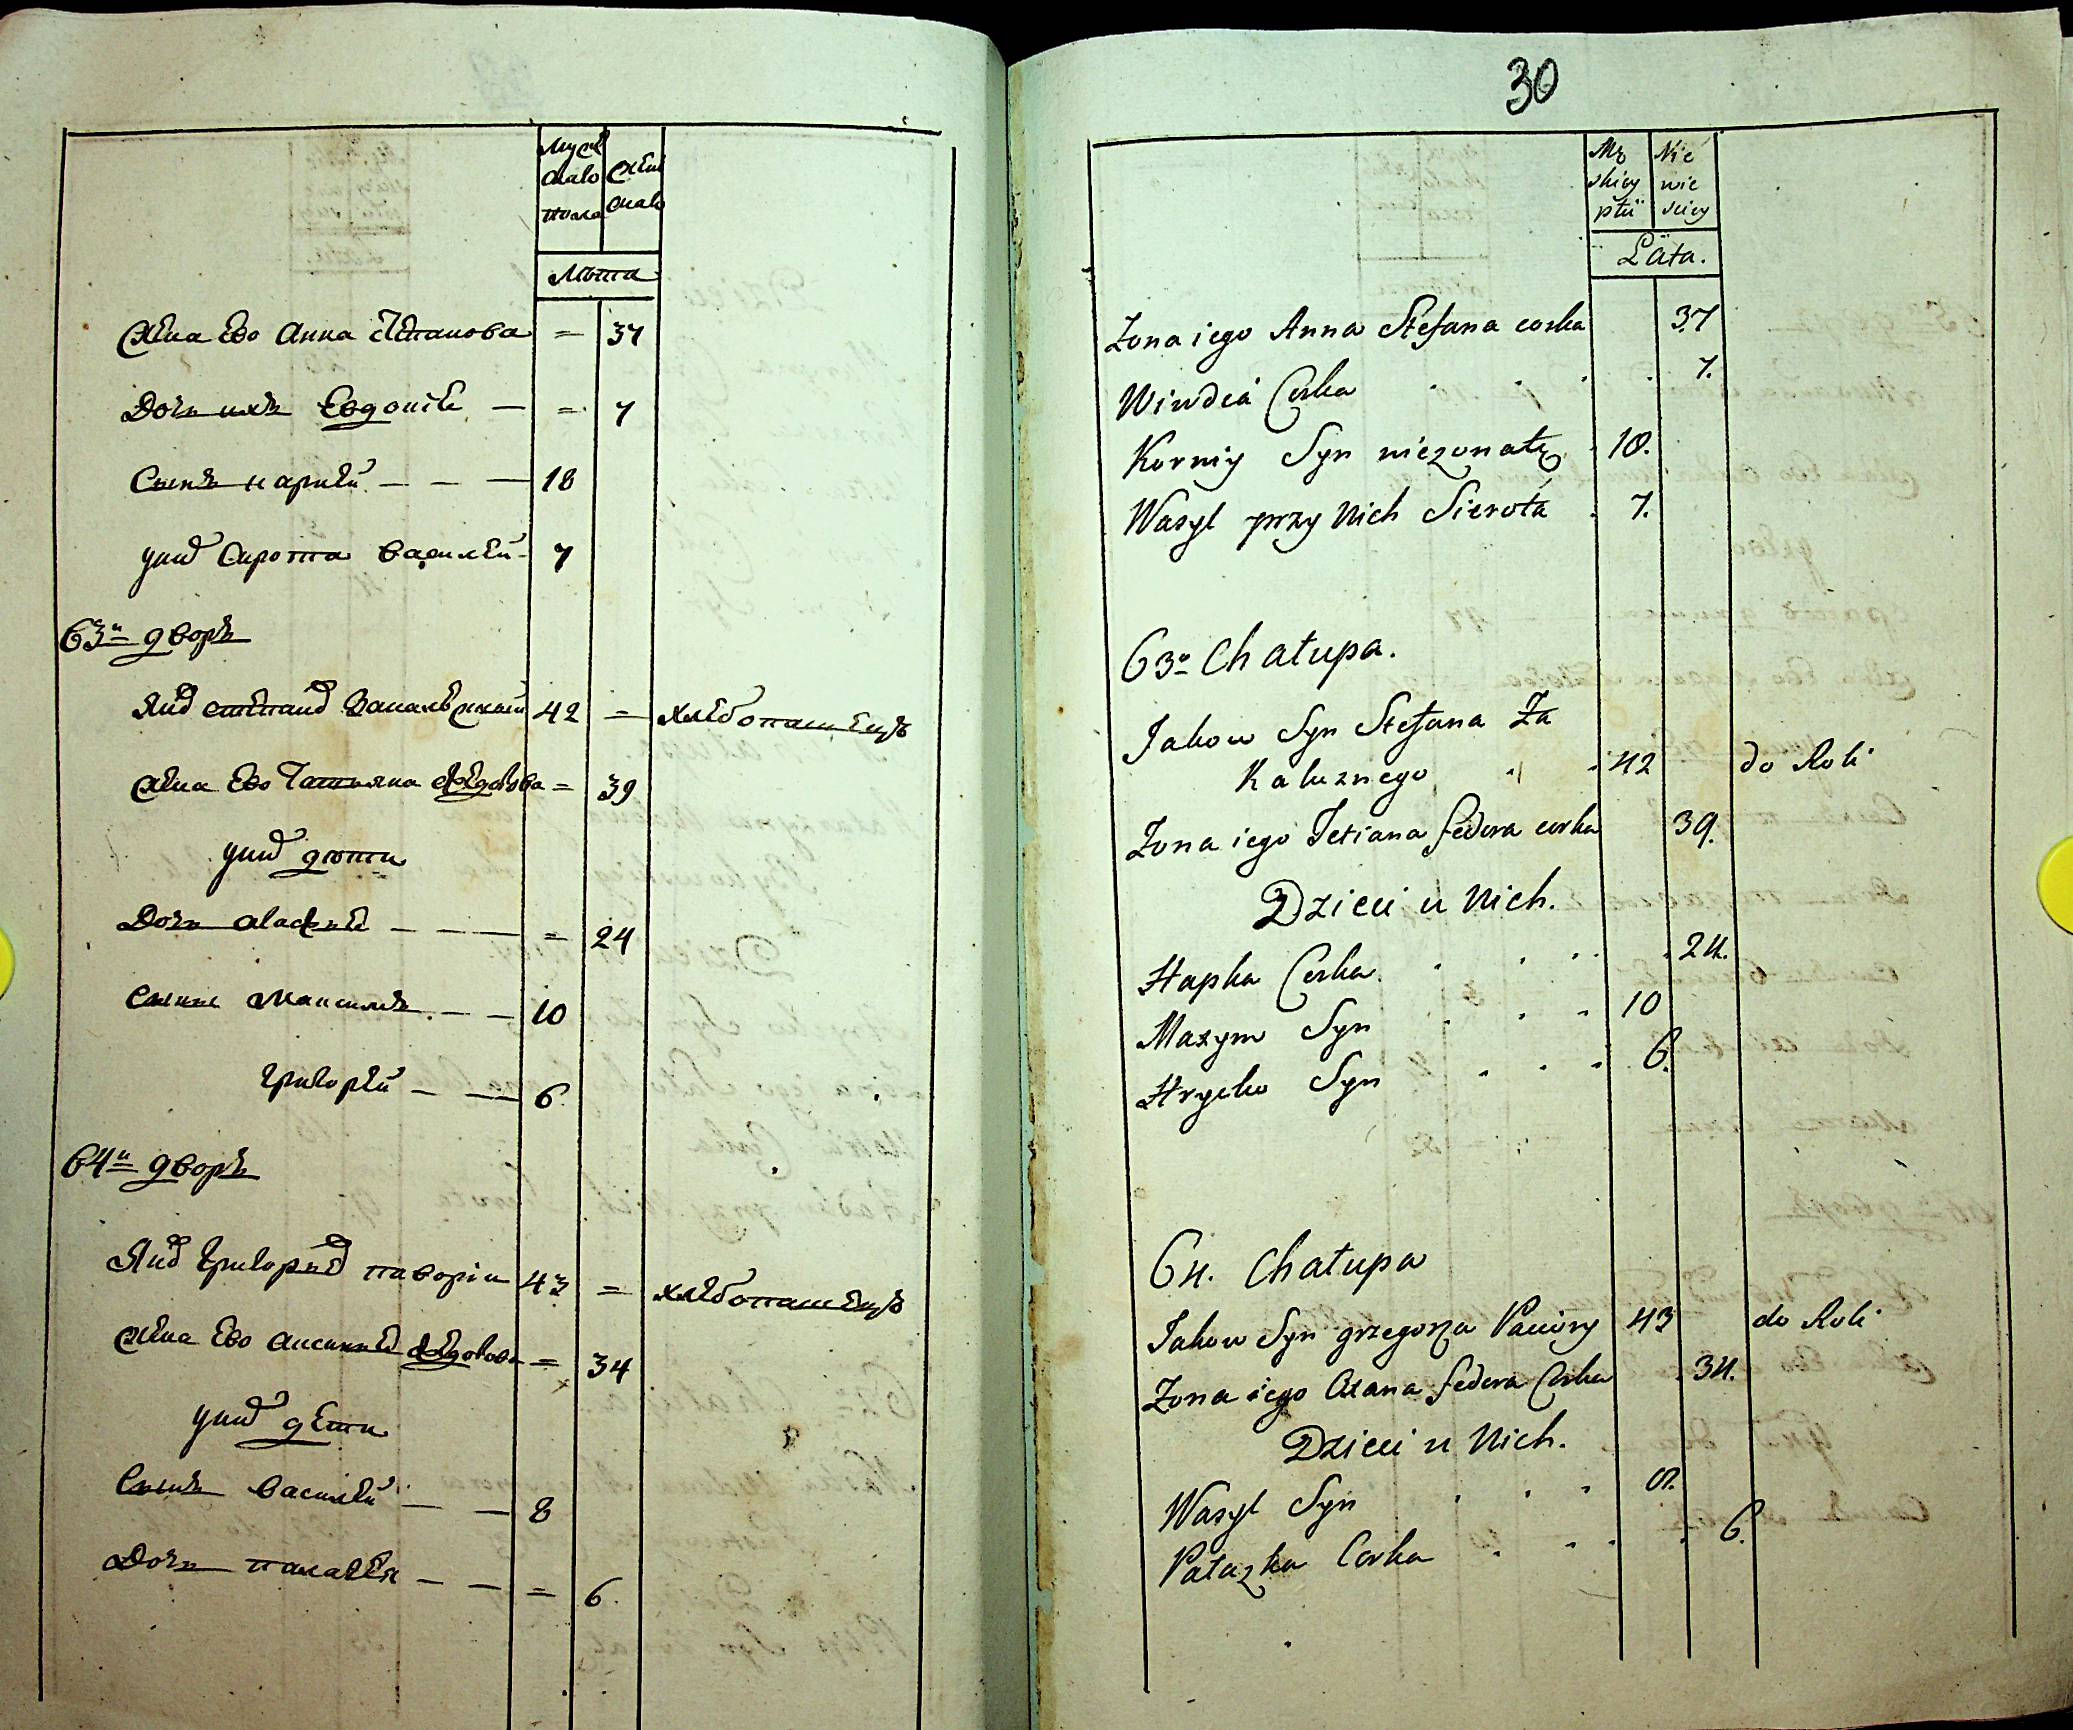 Мужеска пола
Женска
Лѣта
Жена Ево Анна Степанова = 37
Дочь ихъ Евдокіѣ — = 7
Сынъ карнѣй — — — 18
унихъ Сирота василѣй 7
63й дворъ
42 — хлебопашецъ
Жена Ево Татьяна Федорова = 39
унихъ дѣти
Дочь — — — = 24
Сыны Максимъ — — 10
Григорѣй — — 6
64й дворъ
43 = хлебопашецъ
Жена Ево Федорова = 34
унихъ дети
Сынъ василѣй — — 8
Дочь — — = 6.
30
Mę skiey płci
Nie wie sciey
Lata.
Zona iego Anna Stefana corka 37
Corka 7.
Korniy Syn niezonaty 18.
Wasyl przy Nich Sierota 7.
63a Chałupa.
Jakow Syn Stefana Za
Kaluznego 42 do Roli
Zona iego Tetiana fedora corka 39.
Dzieci u Nich.
Hapka Corka 24.
Maxym Syn 10
Hrycko Syn 6.
64. Chałupa
Jakow Syn grzegorza Paciory 43 do Roli
Zona iego Oxana fedora Corka 34.
Dzieci u Nich.
Wasyl Syn 8.
Pałazka Corka 6.